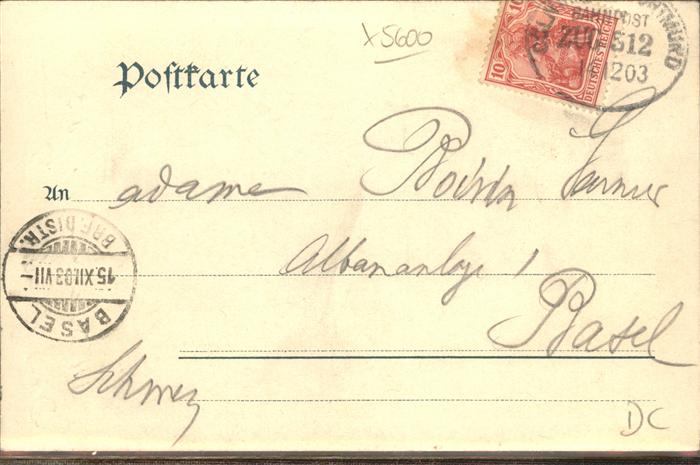 x5600
10 DEUTSCHES REICH 10
DORTMUND
BAHNPOST
ZUG 512
1203
Postkarte
An adame
Albananlage 1
Basel
Schweiz
BASEL
15.XII.03.VII
BRF.DISTR.
DC